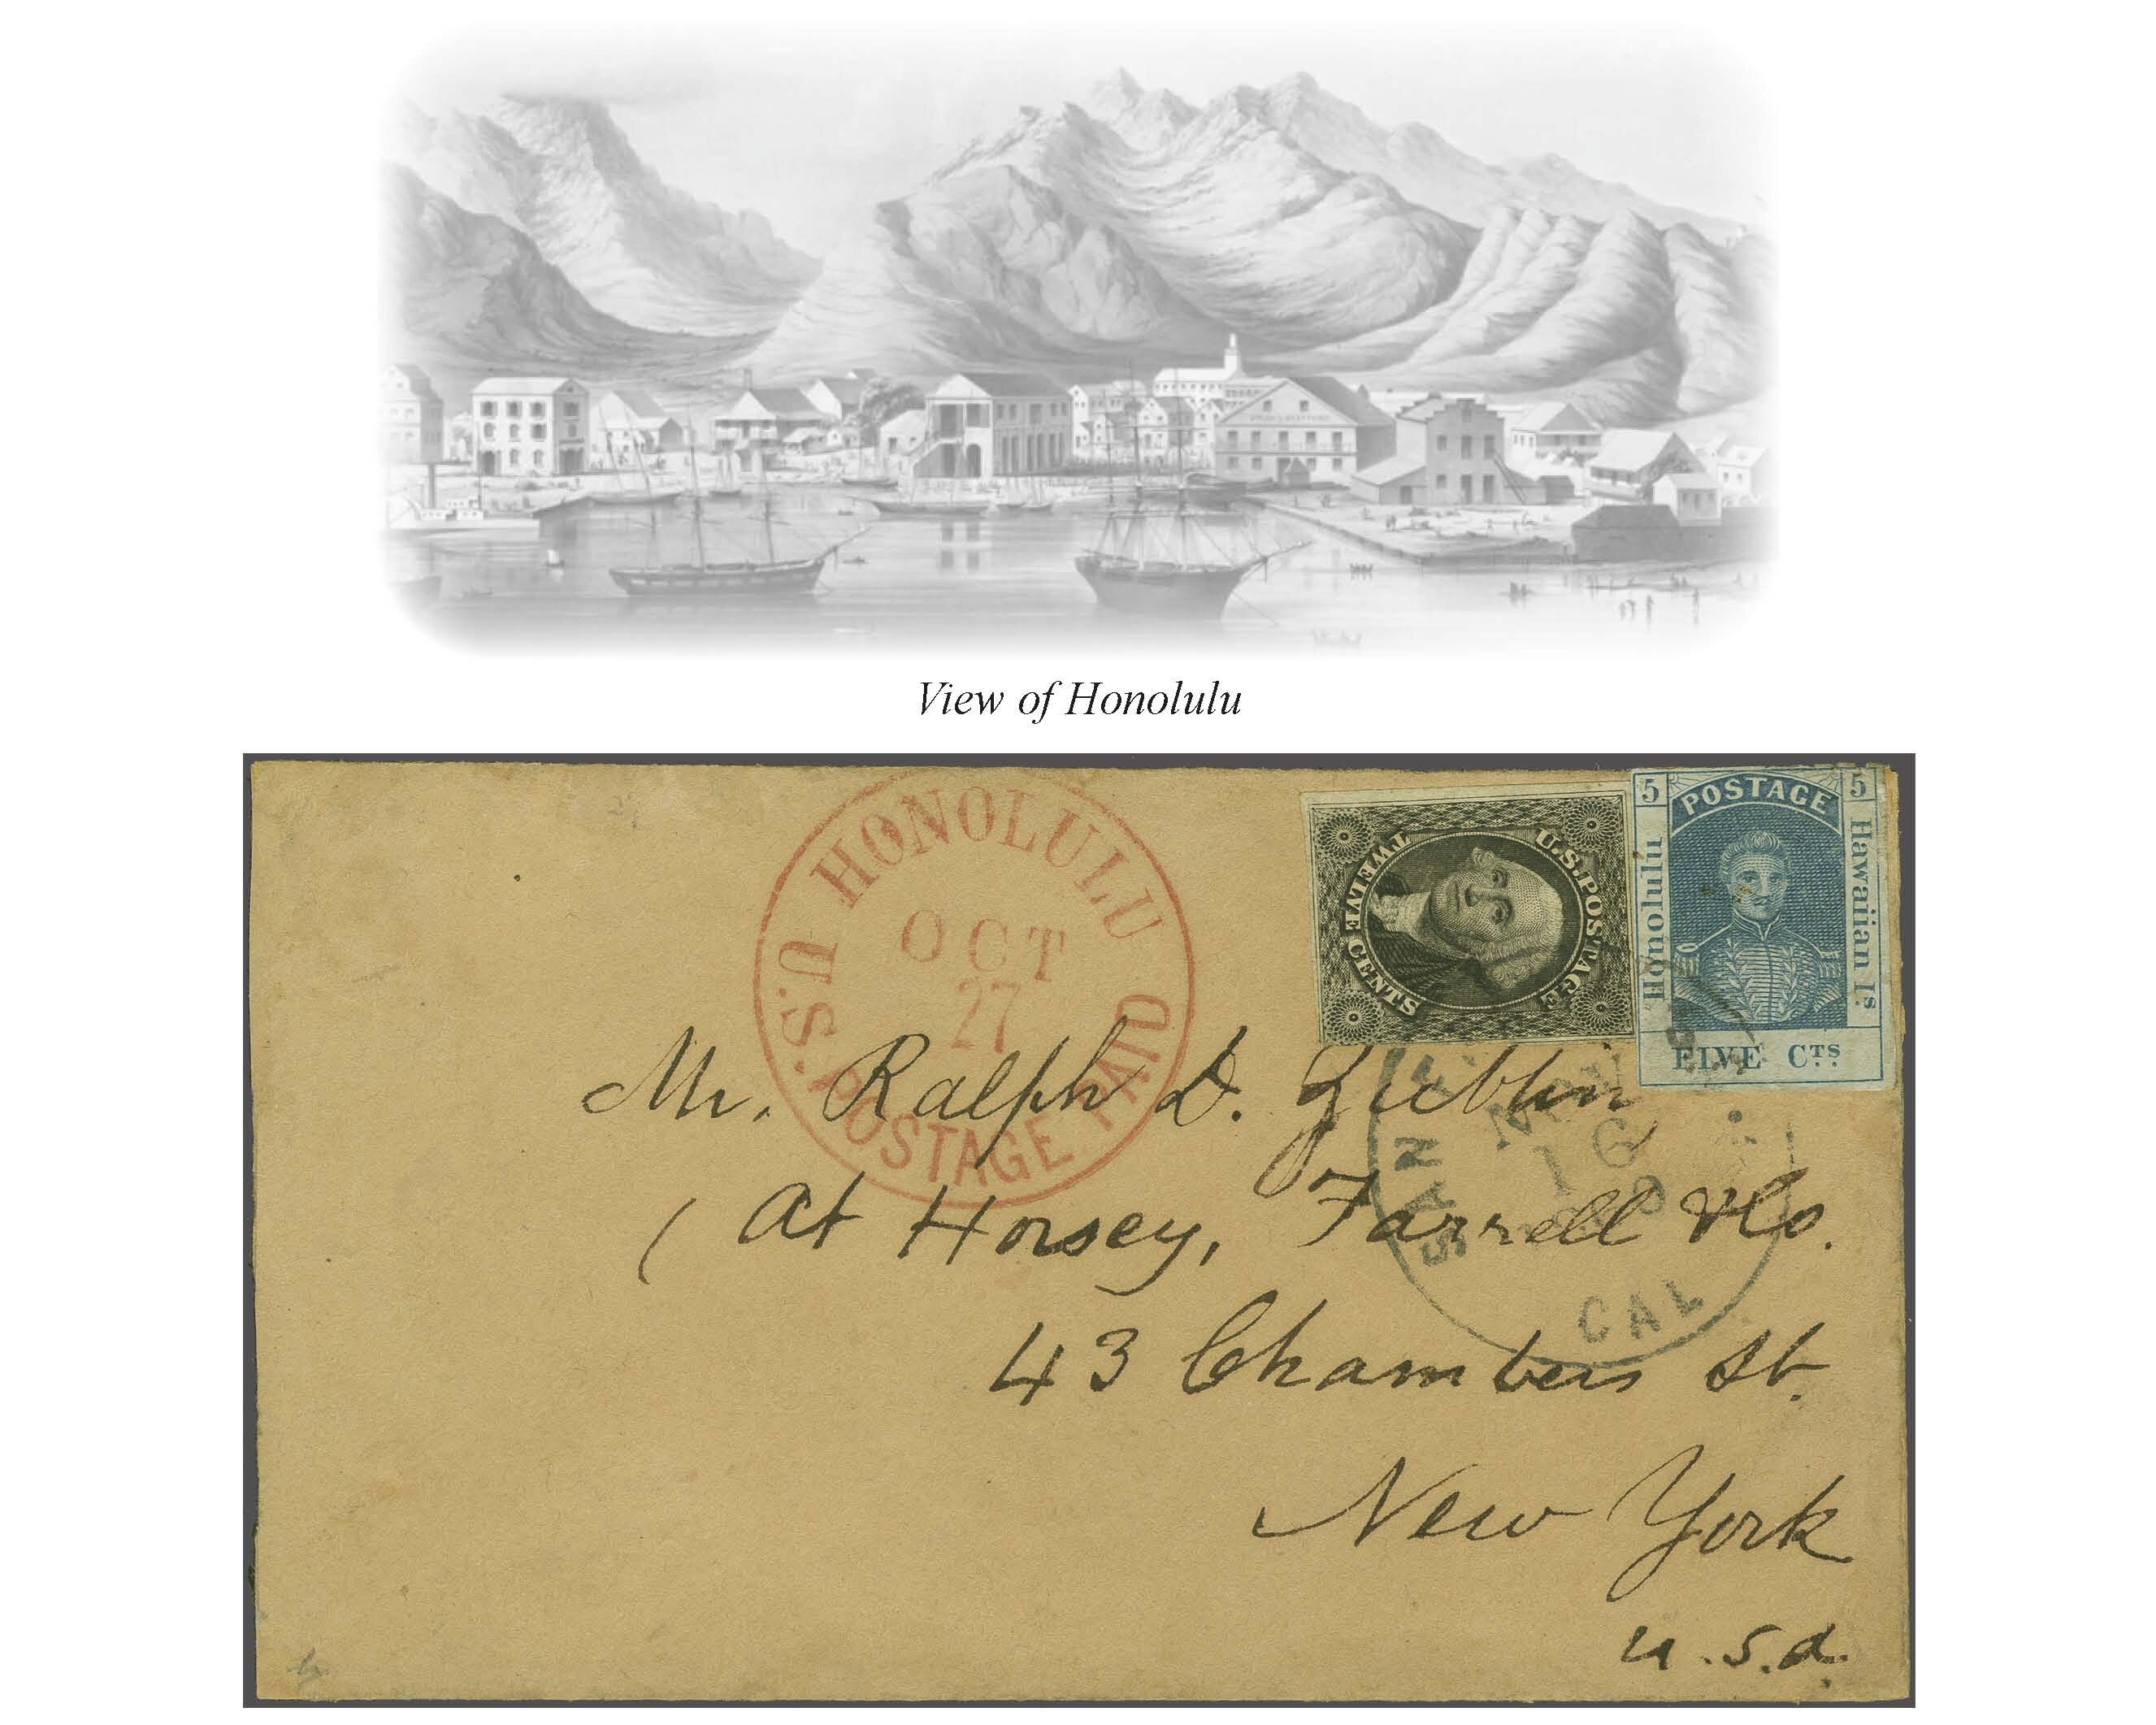 View of Honolulu
HONOLULU
U.S. POSTAGE PAID
OCT
27
U.S. POSTAGE
TWELVE CENTS
5 POSTAGE 5
Honolulu
Hawaiian Is
FIVE Cts
SAN
NOV
16
CAL
Mr. Ralph D.
(At Horsey, Farrell & Co.
43 Chambers St.
New York
U.S.A.